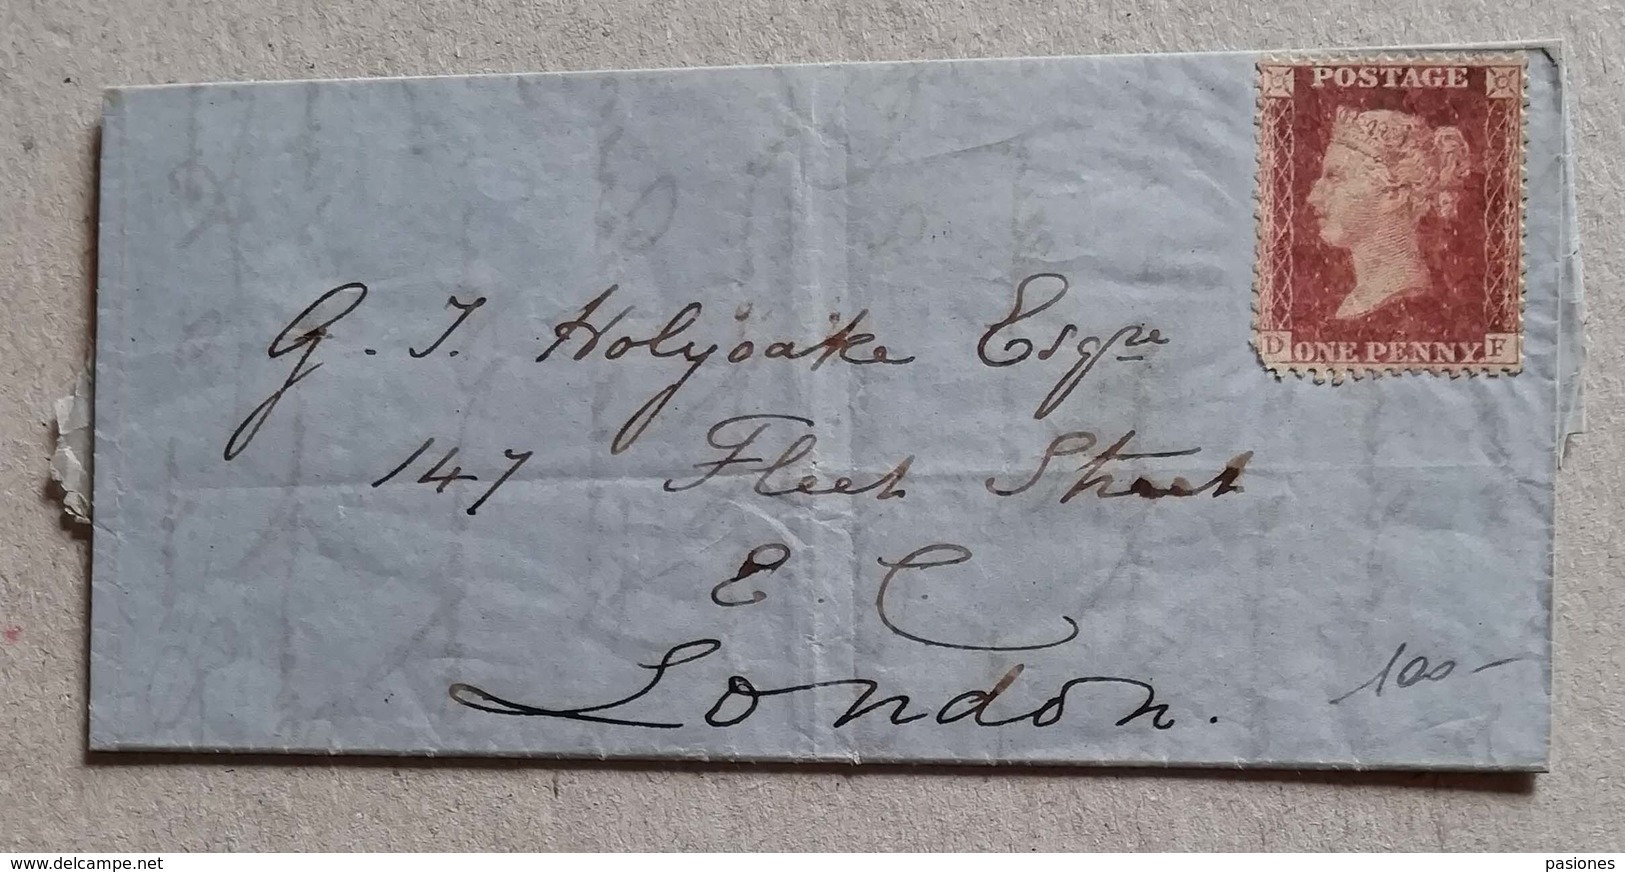 POSTAGE
D ONE PENNY F
G. J. Holyoake Esqre
147 Fleet Street
E. C.
London.
100-
www.delcampe.net
pasiones